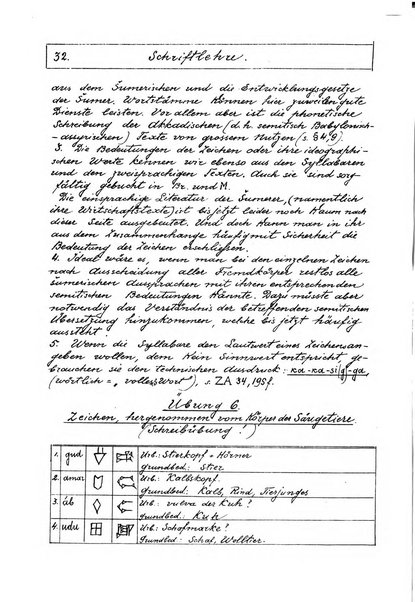 32. Schriftlehre.
aus dem Sumerischen und die Entwicklungsgesetze
der Sumer. Wortstämme können hier zuweilen gute
Dienste leisten. Vor allem aber ist die phonetische
Schreibung der Akkadischen (d.h. semitisch Babylonisch-
assyrischen) Texte von grossem Nutzen (s. § 4,9).
3. Die Bedeutungen der Zeichen oder ihre ideographi-
schen Werte kennen wir ebenso aus den Syllabaren
und den zweisprachigen Texten. Auch sie sind sorg-
fältig gebucht in Br. und M.
Die einsprachige Literatur der Sumerer, (namentlich
ihre Wirtschaftstexte) ist bis jetzt leider noch kaum nach
dieser Seite ausgebeutet. Und doch kann man in ihr
aus dem Zusammenhange häufig mit Sicherheit die
Bedeutung der Zeichen erschließen.
4. Ideal wäre es, wenn man bei den einzelnen Zeichen
nach Ausscheidung aller Fremdkörper restlos alle
sumerischen Aussprachen mit ihren entsprechenden
semitischen Bedeutungen kännte. Dazu müsste aber
notwendig das Verständnis der betreffenden semitischen
Übersetzung hinzukommen, welche bis jetzt häufig
aussteht.
5. Wenn die Syllabare den Lautwert eines Zeichens an-
geben wollen, dem kein Sinnwert entspricht, ge-
brauchen sie den technischen Ausdruck: ka-ka-si-ga
(wörtlich = „volles Wort"), s. ZA 34, 195f.
Übung 6.
Zeichen, hergenommen vom Körper der Säugetiere.
(Schreibübung!)
1. gud Urb.: Stierkopf + Hörner
Grundbed.: Stier
2. amar Urb.: Kalbskopf.
Grundbed.: Kalb, Rind, Tierjunges
3. áb Urb.: vulva der Kuh?
Grundbed.: Kuh
4. udu Urb.: Schafmarke?
Grundbed.: Schaf, Wolltier.